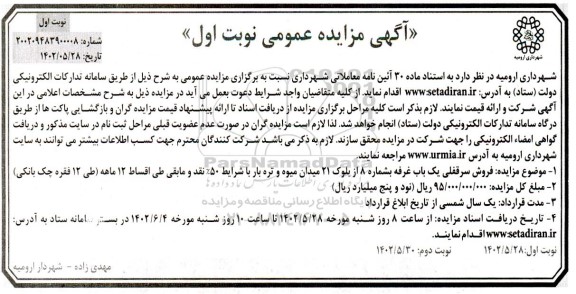 نوبت اول
«آگهی مزایده عمومی نوبت اول»
شماره: ۲۰۰۲۰۹۴۸۳۹۰۰۰۰۸
تاریخ: ۱۴۰۲/۰۵/۲۸
شهرداری ارومیه
شهرداری ارومیه در نظر دارد به استناد ماده ۳۰ آئین نامه معاملاتی شهرداری نسبت به برگزاری مزایده عمومی به شرح ذیل از طریق سامانه تدارکات الکترونیکی
دولت (ستاد) به آدرس: www.setadiran.ir اقدام نماید. از کلیه متقاضیان واجد شرایط دعوت بعمل می آید در مزایده ذیل به شرح مشخصات اعلامی در این
آگهی شرکت و ارائه قیمت نمایند. لازم بذکر است کلیه مراحل برگزاری مزایده از دریافت اسناد تا ارائه پیشنهاد قیمت مزایده گران و بازگشایی پاکت ها از طریق
درگاه سامانه تدارکات الکترونیکی دولت (ستاد) انجام خواهد شد. لذا لازم است مزایده گران در صورت عدم عضویت قبلی مراحل ثبت نام در سایت مذکور و دریافت
گواهی امضاء الکترونیکی را جهت شرکت در مزایده محقق سازند. لازم به ذکر می باشد شرکت کنندگان محترم جهت کسب اطلاعات بیشتر می توانند به سایت
شهرداری ارومیه به آدرس www.urmia.ir مراجعه نمایند.
۱- موضوع مزایده: فروش سرقفلی یک باب غرفه بشماره ۸ از بلوک ۲۱ میدان میوه و تره بار با شرایط ۵۰٪ نقد و مابقی طی اقساط ۱۲ ماهه (طی ۱۲ فقره چک بانکی)
۲- مبلغ کل مزایده: ۹۵/۰۰۰/۰۰۰/۰۰۰ ریال (نود و پنج میلیارد ریال)
۳- مدت قرارداد: یک سال شمسی از تاریخ ابلاغ قرارداد
۴- تاریخ دریافت اسناد مزایده: از ساعت ۸ روز شنبه مورخه ۱۴۰۲/۵/۲۸ تا ساعت ۱۰ روز شنبه مورخه ۱۴۰۲/۶/۴ در بستر سامانه ستاد به آدرس:
www.setadiran.ir اقدام نمایند.
نوبت اول: ۱۴۰۲/۵/۲۸ نوبت دوم: ۱۴۰۲/۵/۳۰
مهدی زاده - شهردار ارومیه
ParsNamadData
پایگاه اطلاع رسانی مناقصه و مزایده